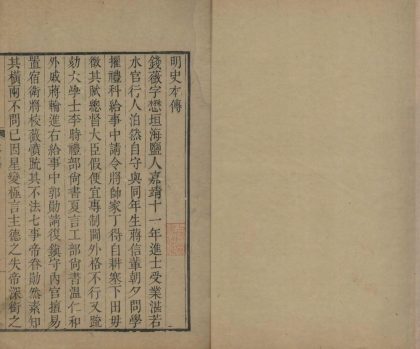 明史本傳
錢薇字懋垣海鹽人嘉靖十一年進士受業湛若
水官行人泊然自守與同年生蔣信輩朝夕問學
擢禮科給事中請令將帥家丁得自耕塞下田毋
徵其賦總督大臣假便宜專制閫外格不行又疏
劾大學士李時禮部尚書夏言工部尚書溫仁和
外戚蔣輪進右給事中郭勛請復鎮守內官擅易
置宿衞將校薇憤疏其不法七事帝眷勛然素知
其橫兩不問已因星變極言主德之失帝深銜之